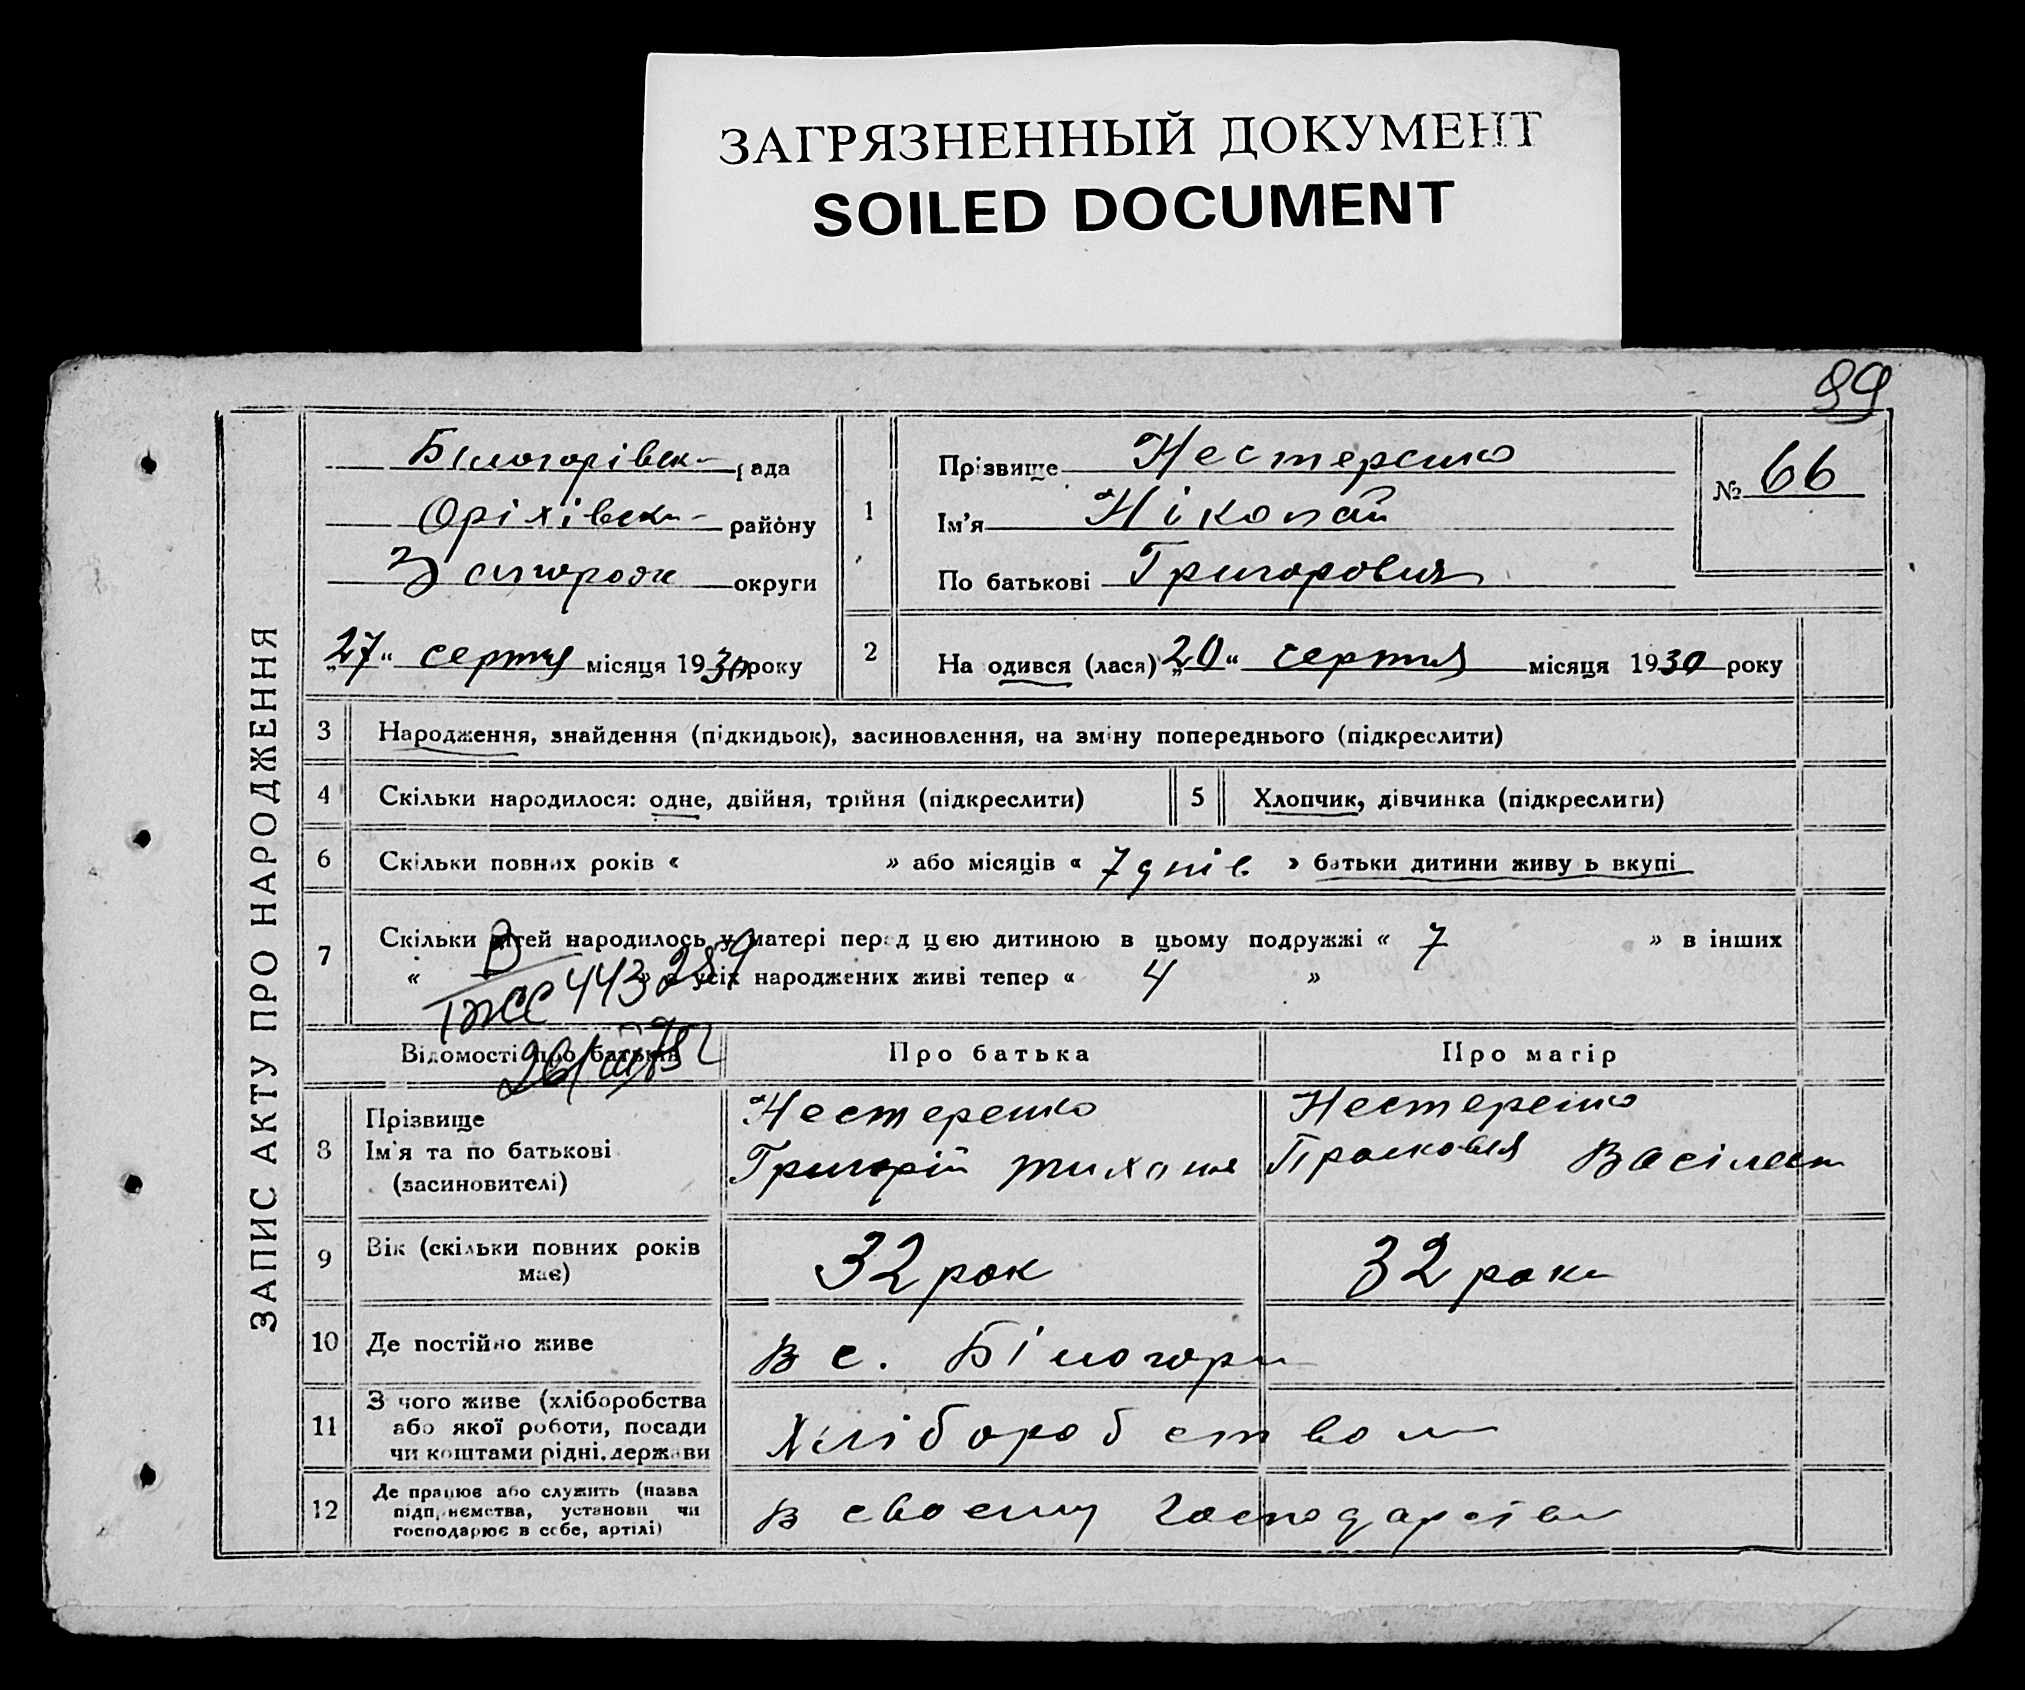 ЗАГРЯЗНЕННЫЙ ДОКУМЕНТ
SOILED DOCUMENT
89
ЗАПИС АКТУ ПРО НАРОДЖЕННЯ
Білогорівськ рада
Оріхівськ району
Запорож округи
„27“ серпня місяця 1930 року
1
Прізвище Нестеренко
Ім'я Ніколай
По батькові Григорович
№ 66
2
На одився (лася) „20“ серпня місяця 1930 року
3 Народження, знайдення (підкидьок), засиновлення, на зміну попереднього (підкреслити)
4 Скільки народилося: одне, двійня, трійня (підкреслити) 5 Хлопчик, дівчинка (підкреслити)
6 Скільки повних років « » або місяців « 7 днів » батьки дитини живу ь вкупі
7 Скільки дітей народилось у матері перед цєю дитиною в цьому подружжі « 7 » в інших
« » усіх народжених живі тепер « 4 »
443259
Відомості про батьків Про батька Про матір
8 Прізвище
Ім'я та по батькові
(засиновителі)
Нестеренко
Григорій Тихон
Нестеренко
Прасковія Васілест
9 Вік (скільки повних років
має)
32 рок 32 роки
10 Де постійно живе В с. Білогори
11 З чого живе (хліборобства
або якої роботи, посади
чи коштами рідні, держави
Хліборобством
12 Де працює або служить (назва
підприємства, установи чи
господарює в себе, артілі)
В своєму господарстві